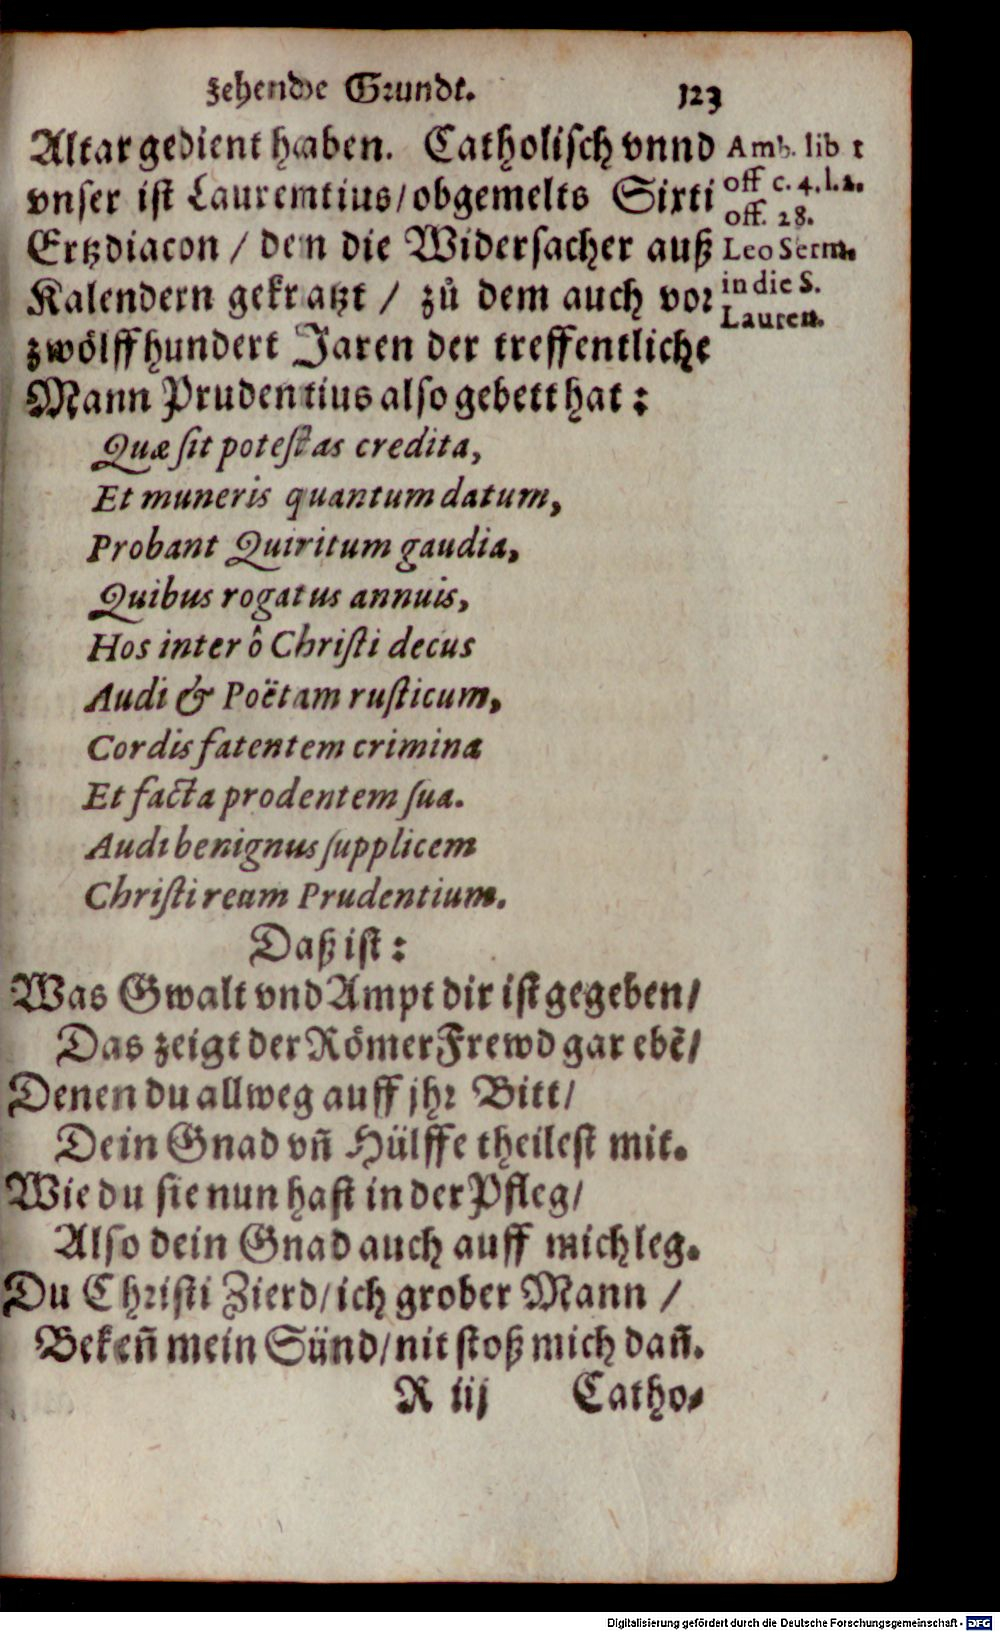 zehende Grundt. 123
Altar gedient haben. Catholisch vnnd
vnser ist Laurentius/ obgemelts Sixti
Ertzdiacon / den die Widersacher auß
Kalendern gekratzt / zů dem auch vor
zwölffhundert Jaren der treffentliche
Mann Prudentius also gebett hat:
Amb. lib 1
off c. 4. l. 2.
off. 28.
Leo Serm.
in die S.
Lauren.
Quæ sit potestas credita,
Et muneris quantum datum,
Probant Quiritum gaudia,
Quibus rogatus annuis,
Hos inter ô Christi decus
Audi & Poëtam rusticum,
Cordis fatentem crimina
Et facta prodentem sua.
Audi benignus supplicem
Christi reum Prudentium.
Daß ist:
Was Gwalt vnd Ampt dir ist gegeben/
Das zeigt der Römer Frewd gar ebē/
Denen du allweg auff jhr Bitt/
Dein Gnad vn̄ Hülffe theilest mit.
Wie du sie nun hast in der Pfleg/
Also dein Gnad auch auff mich leg.
Du Christi Zierd/ ich grober Mann /
Beken̄ mein Sünd/ nit stoß mich dan̄.
R iij Catho-
Digitalisierung gefördert durch die Deutsche Forschungsgemeinschaft - DFG